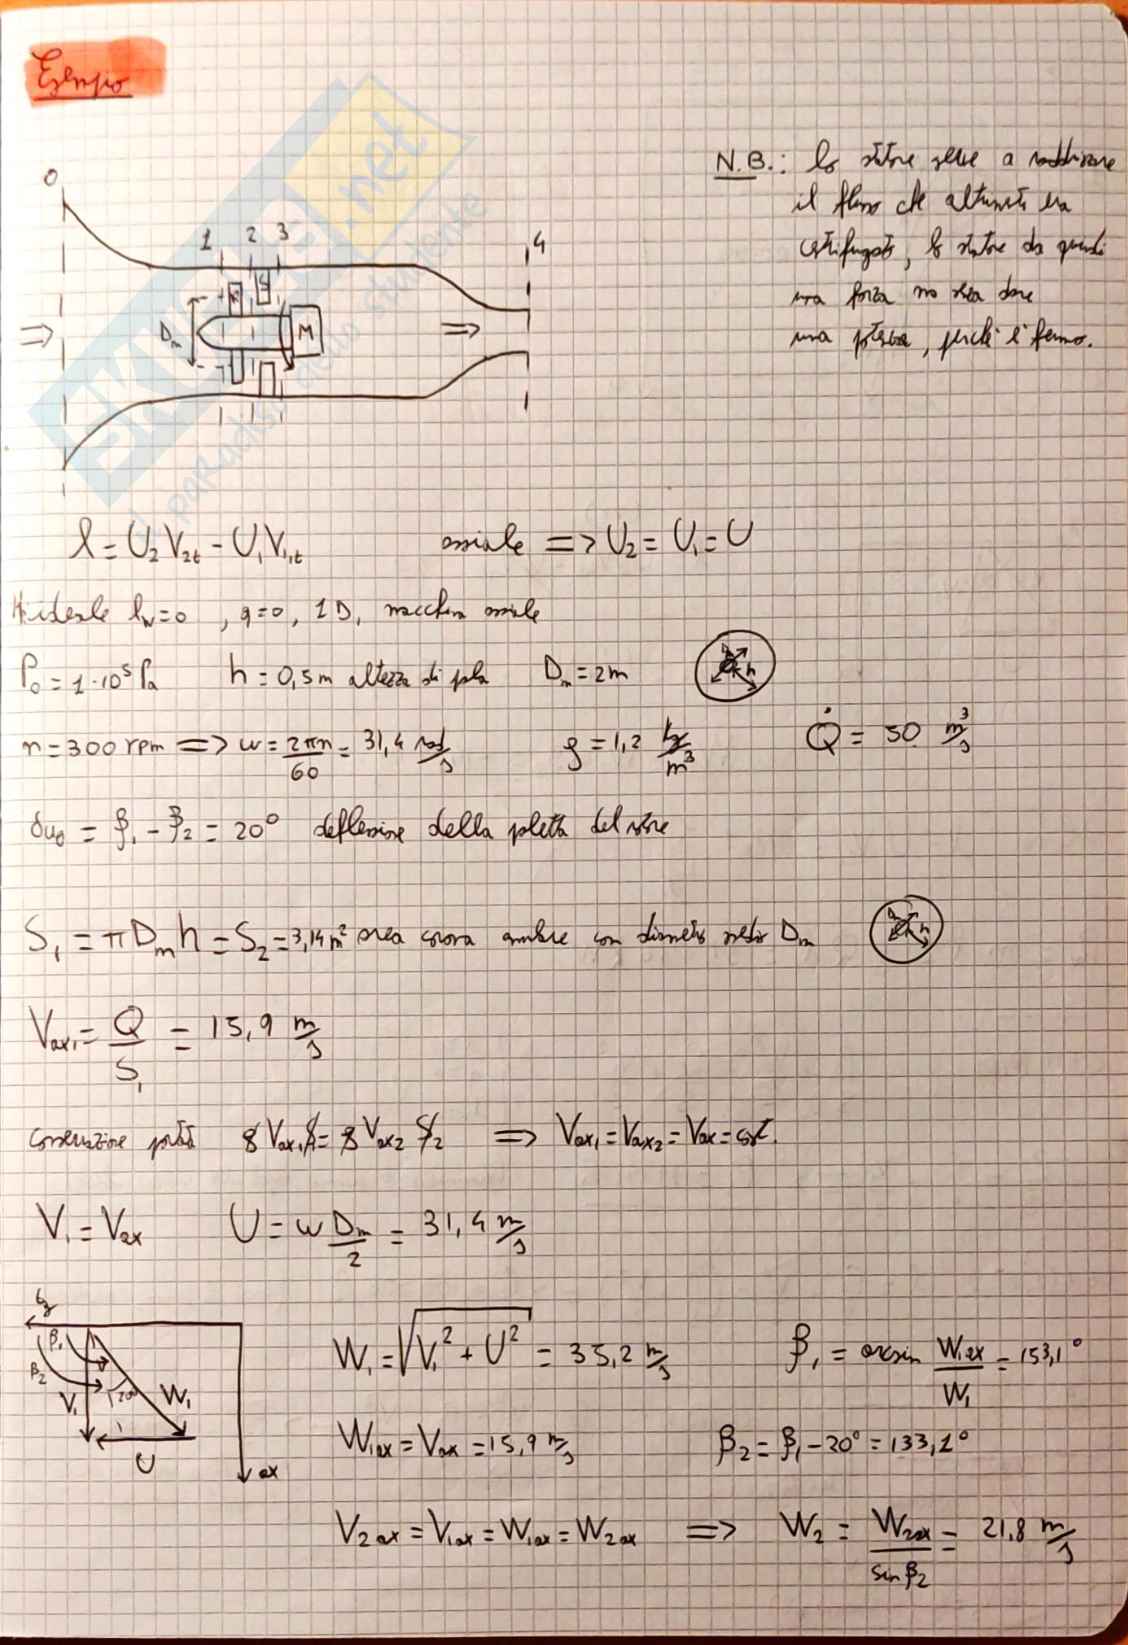 Esempio
0 1 2 3 4
Dm R S M
N.B.: lo statore serve a raddrizzare
il flusso che altrimenti era
centrifugato, lo statore da quindi
una forza ma senza dare
una potenza, perché è fermo.
l = U₂V₂t - U₁V₁t assiale => U₂ = U₁ = U
H: ideale lw=0, q=0, 1D, macchina assiale
P₀ = 1·10⁵ Pa h = 0,5m altezza di pala Dm = 2m h
n = 300 rpm => ω = 2πn/60 = 31,4 rad/s ρ = 1,2 kg/m³ Q̇ = 50 m³/s
= β₁ - β₂ = 20° deflessione della paletta del rotore
S₁ = πDmh = S₂ = 3,14m² area corona anulare con diametro medio Dm h
Vax₁ = Q/S₁ = 15,9 m/s
conservazione portata ρVax₁S₁ = ρVax₂S₂ => Vax₁ = Vax₂ = Vax = cost.
V₁ = Vax U = ωDm/2 = 31,4 m/s
β₁ β₂ V₁ 20° W₁ U ax
W₁ = √(V₁² + U²) = 35,2 m/s β₁ = arcsin W₁ax/W₁ = 153,1°
W₁ax = Vax = 15,9 m/s β₂ = β₁ - 20° = 133,1°
V₂ax = V₁ax = W₁ax = W₂ax => W₂ = W₂ax/sinβ₂ = 21,8 m/s